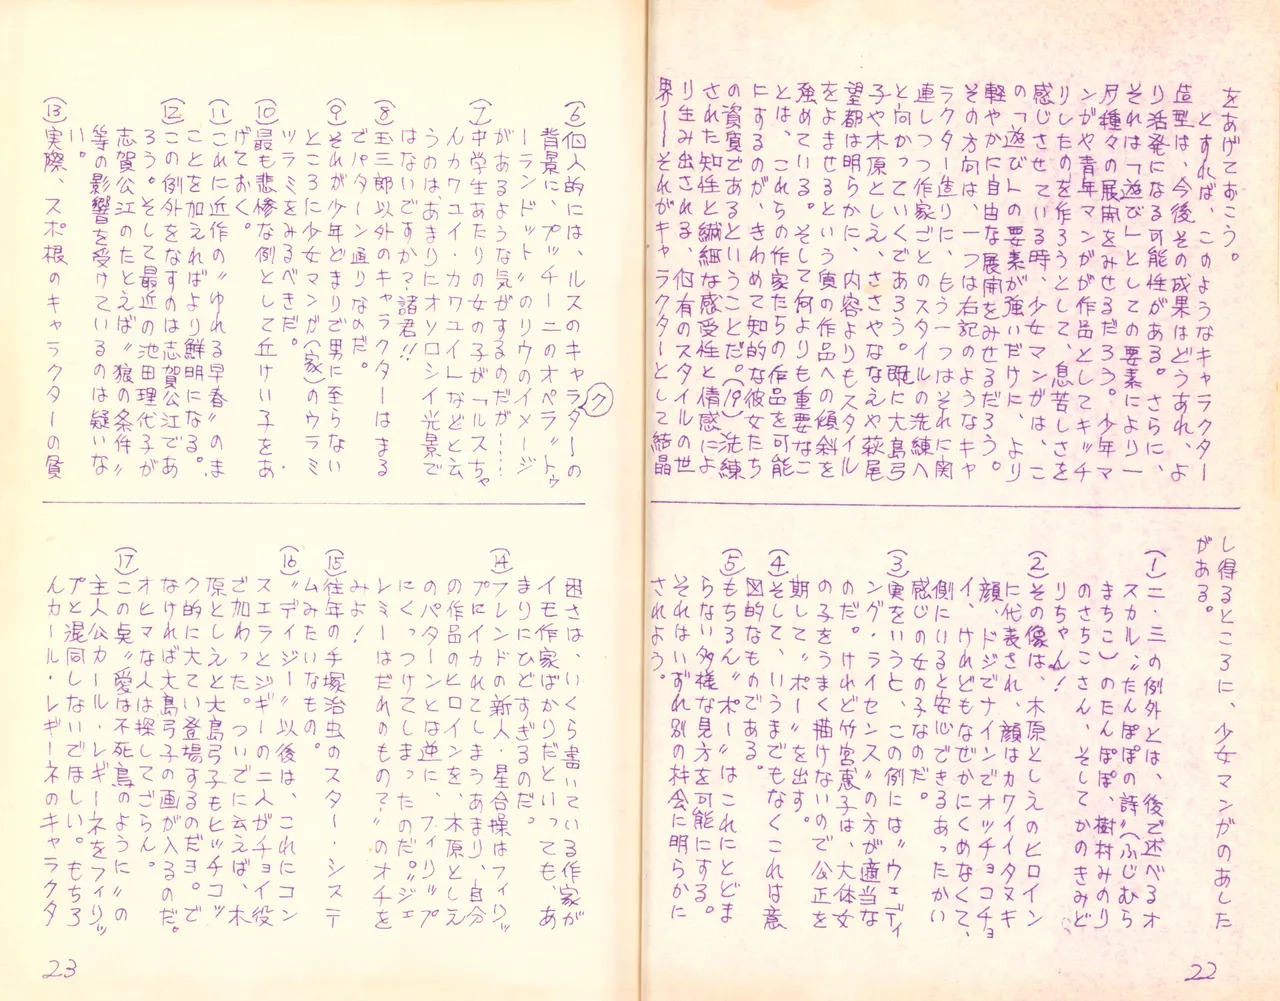 をあげておこう。
とすれば、このようなキャラクター
造型は、今後その成果はどうあれ、よ
り活発になる可能性がある。さらに、
それは「遊び」としての要素により一
層種々の展開をみせるだろう。少年マ
ンガや青年マンガが作品としてキッチ
リしたのを作ろうとして、息苦しさを
感じさせている時、少女マンガは、こ
の「遊び」の要素が強いだけに、より
軽やかに自由な展開をみせるだろう。
その方向は、一つは右記のようなキャ
ラクター造りに、もう一つはそれに関
連しつつ作家ごとのスタイルの洗練へ
と向かっていくであろう。既に大島弓
子や木原としえ、ささやななえや萩尾
望都は明らかに、内容よりもスタイル
をよませるという質の作品への傾斜を
強めている。そして何よりも重要なこ
とは、これらの作家たちの作品を可能
にするのが、きわめて知的な彼女たち
の資質であるということだ。(19)洗練
された知性と繊細な感受性と情感によ
り生み出される、個有のスタイルの世
界——それがキャラクターとして結晶
し得るところに、少女マンガのあした
がある。
(1)二・三の例外とは、後で述べるオ
スカル、〝たんぽぽの詩〟(ふじむら
まちこ)のたんぽぽ、樹村みのり
のさちこさん、そしてかのきみど
りちゃん!
(2)その像は、木原としえのヒロイン
に代表され、顔はカワイイタヌキ
顔、ドジでナインでオッチョコチョ
イ、けれどもなぜかにくめなくて、
側にいると安心できるあったかい
感じの女の子なのだ。
(3)実をいうと、この例には〝ウェディ
ング・ライセンス〟の方が適当な
のだ。けれど竹宮恵子は、大体女
の子をうまく描けないので公正を
期して〝ポー〟を出す。
(4)そして、いうまでもなくこれは意
図的なものである。
(5)もちろん〝ポー〟はこれにとどま
らない多様な見方を可能にする。
それはいずれ別の枠会に明らかに
されよう。
22
(6)個人的には、ルスのキャラクターの
背景に、プッチーニのオペラ〝トゥ
ーランドット〟のリウのイメージ
があるような気がするのだが……
(7)中学生あたりの女の子が「ルスちゃ
んカワユイ・カワユイ」などと云
うのは、あまりにオソロシイ光景で
はないですか?諸君!!
(8)玉三郎以外のキャラクターはまる
でパターン通りなのだ。
(9)それが少年どまりで男に至らない
ところに少女マンガ(家)のウラミ
ツラミをみるべきだ。
(10)最も悲惨な例として丘けい子をあ
げておく。
(11)これに近作の〝ゆれる早春〟のま
ことを加えればより鮮明になる。
(12)この例外をなすのは志賀公江であ
ろう。そして最近の池田理代子が
志賀公江のたとえば〝狼の条件〟
等の影響を受けているのは疑いな
い。
(13)実際、スポ根のキャラクターの貧
困さは、いくら書いている作家が
イモ作家ばかりだといっても、あ
まりにひどすぎるのだ。
(14)フレンドの新人・星合操はフィリッ
プにイカれてしまうあまり、自分
の作品のヒロインを、木原としえ
のパターンとは逆に、フィリップ
にくっつけてしまったのだ。〝ジェ
レミーはだれのもの?〟のオチを
みよ!
(15)往年の手塚治虫のスター・システ
ムみたいなもの。
(16)〝デイジー〟以後は、これにコン
スエラとジギーの二人がチョイ役
で加わった。ついでに云えば、木
原としえと大島弓子もヒッチコッ
ク的に大てい登場するのだヨ。で
なければ大島弓子の画が入るのだ。
オヒマな人は探してごらん。
(17)この点〝愛は不死鳥のように〟の
主人公カール・レギーネをフィリッ
プと混同しないでほしい。もちろ
んカール・レギーネのキャラクタ
23